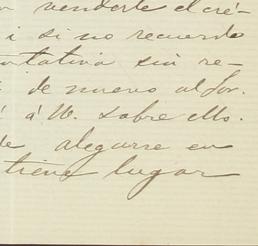 venderle el cré-
i si no recuerdo
tentativa sin re-
de nuevo al Sor.
á V. sobre ello.
de alegarre en
tiene lugar